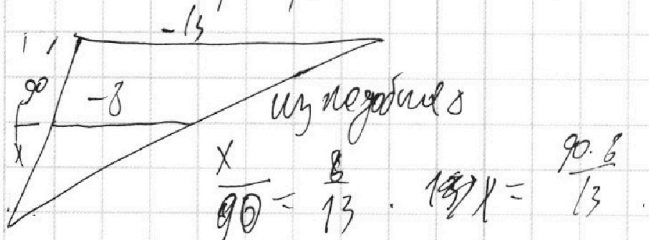 -13
90
-8
x
из подобия Δ
x/90 = 8/13 . x = 90·8/13 .